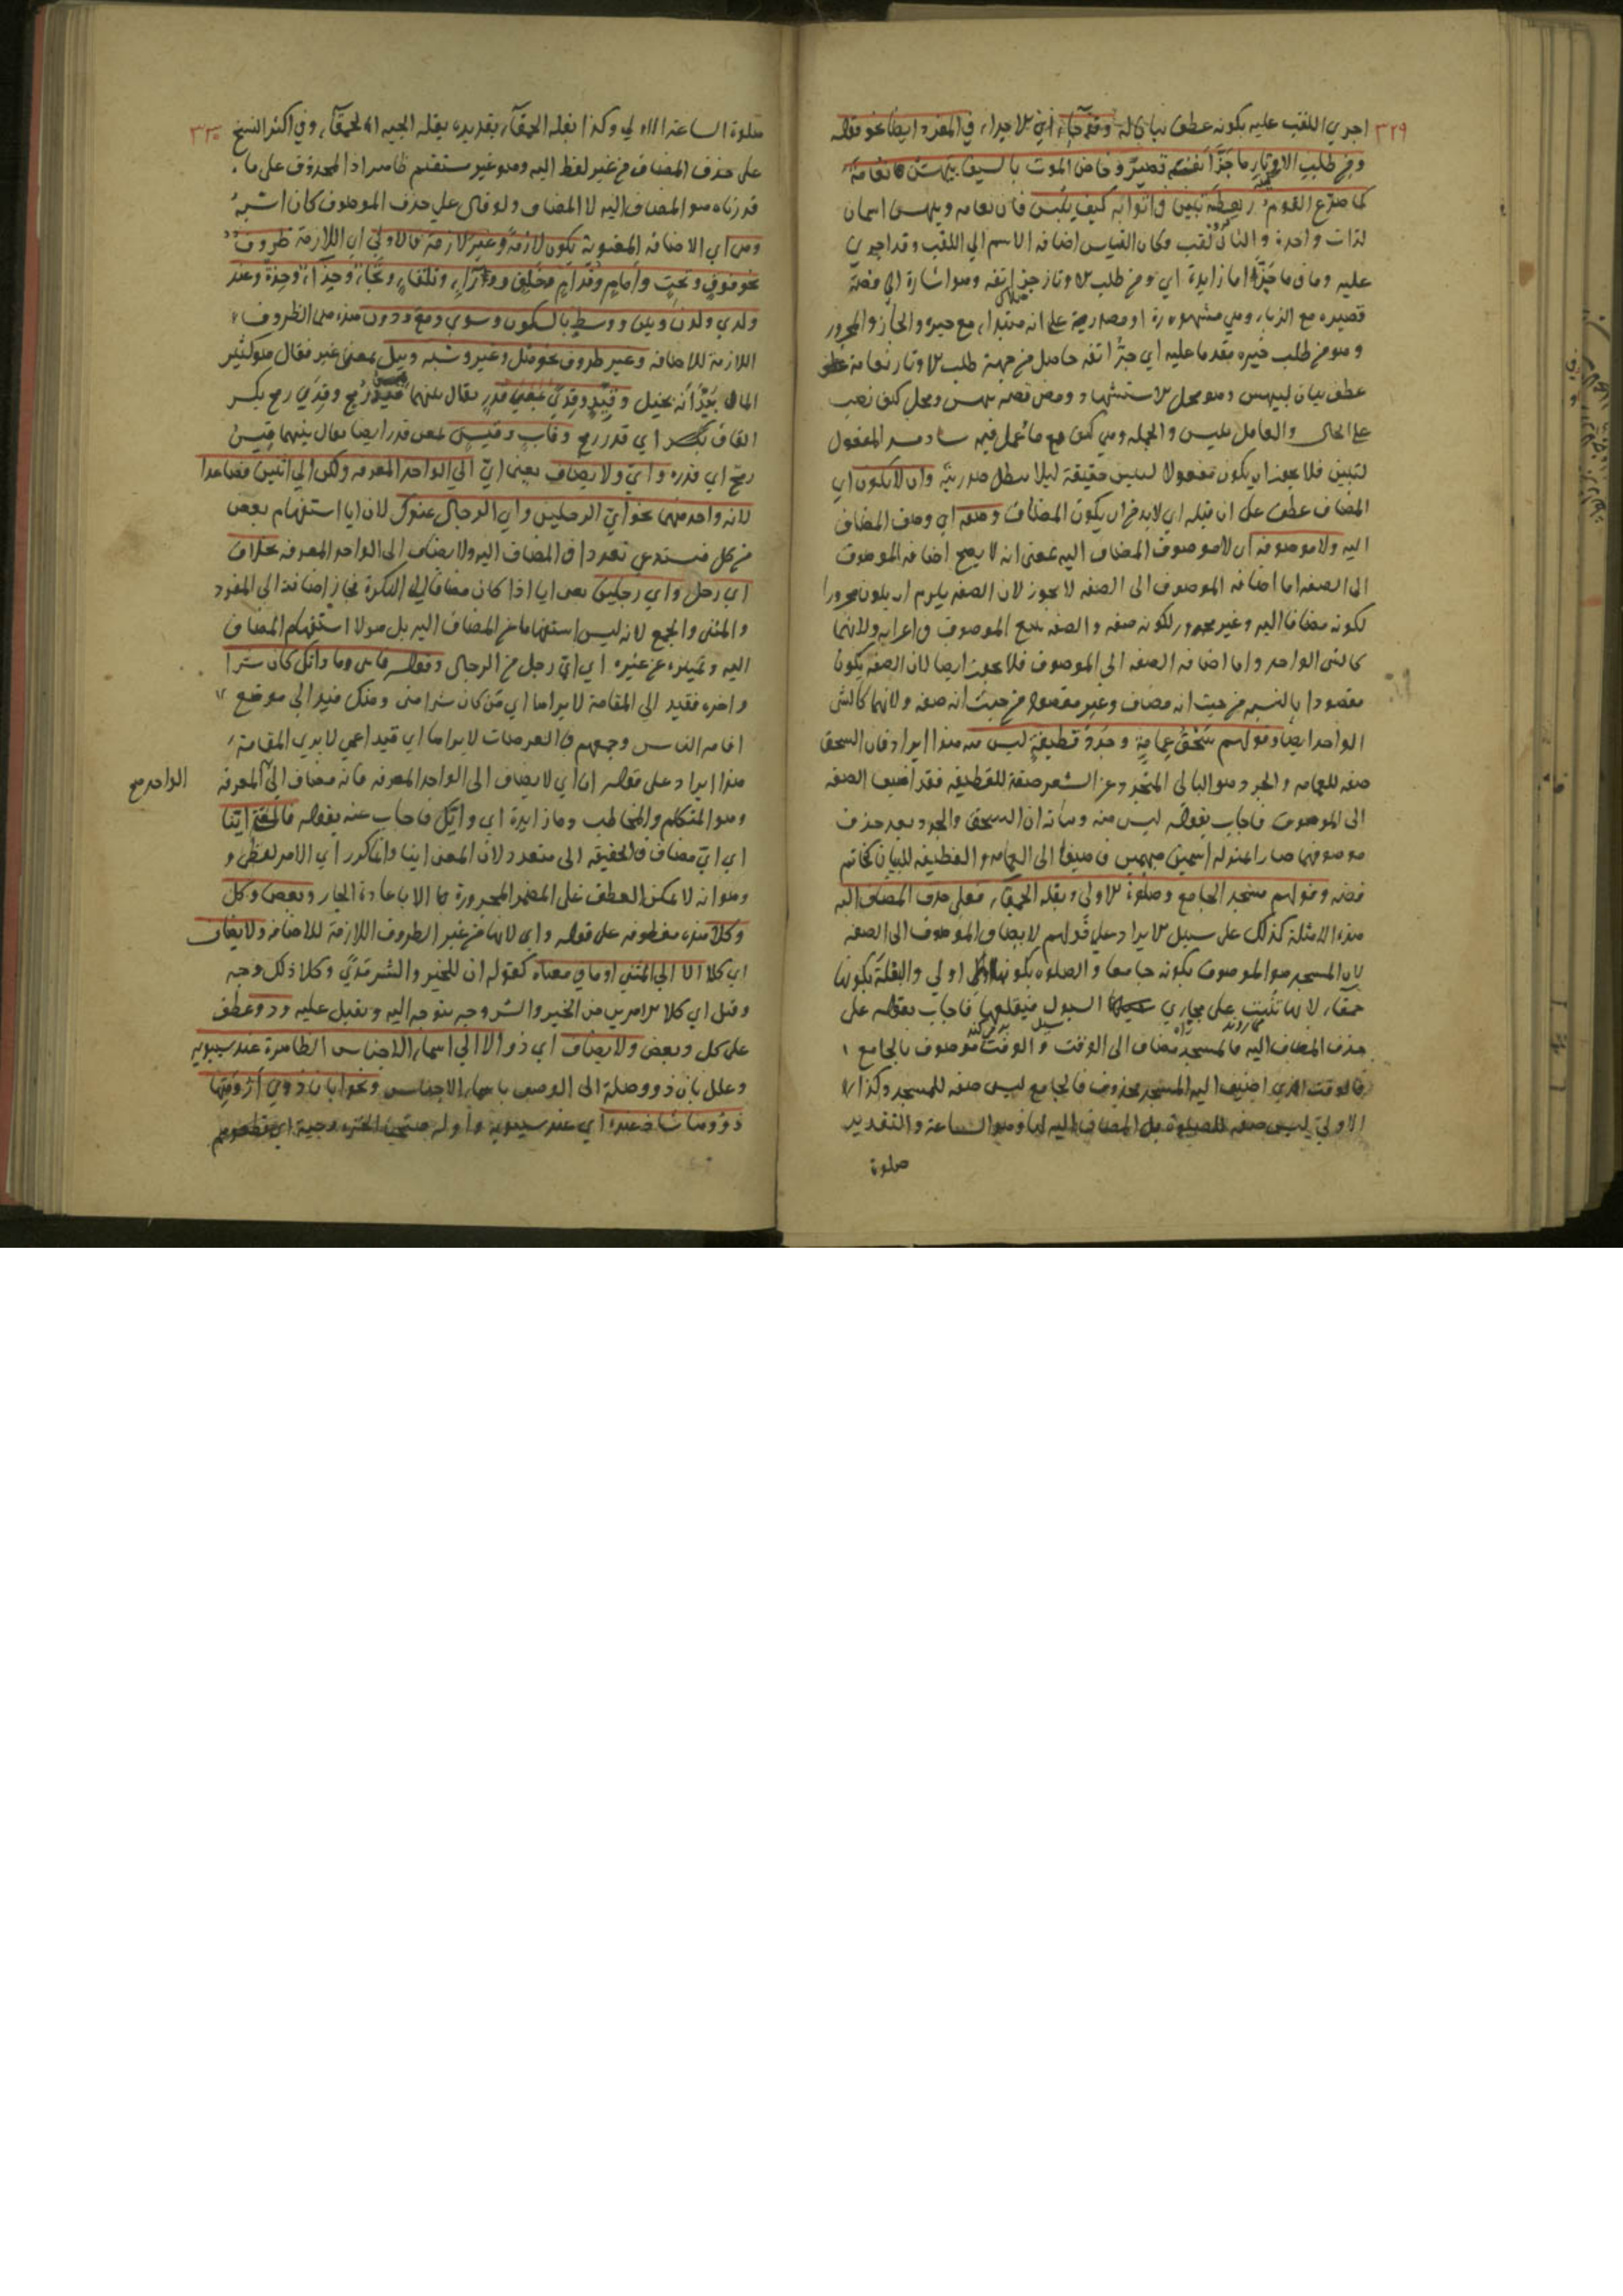 ٣٢٩
اجري اللقب عليه بكونه عطف بيان له وقد جاء اي الاجراء في المفرد ايضا نحو قوله
ومن طلب الاوتار ما جز انفه قصير وخاض الموت بالسيف بيهس نعامة
لما صرع القوم رهطه تبين في اثوابه كيف يلبس فان نعامه وبيهس اسمان
لذات واحدة والثاني لقب وكان القياس اضافه الاسم الي اللقب وقد اجري
عليه وما في ما جز اما زايدة اي ومن طلب الاوتار جز انفه وهو اشارة الي قصة
قصيره مع الزباء وهي مشهوره او مصدرية على انه مبتداء مع خبره والجار والمجرور
وهو من طلب خبره مقدما عليه اي جز انفه حاصل من جهة طلب الاوتار نعامة
عطف بيان لبيهس وهو محل الاستشهاد ومحل كيف نصب
على الحال والعامل يلبس والجمله وهي كيف مع ما عمل فيه ساد مسد المفعول
لتبين فلا يجوز ان يكون مفعولا لتبين حقيقة ليلا يبطل صدريته وان لا يكون اي
المضاف عطف على ان قبله اي لا بد من ان يكون المضاف وصفه اي وصف المضاف
اليه ولا موصوفه اي لا موصوف المضاف اليه بمعنى انه لا يصح اضافه الموصوف
الى الصفه اما اضافه الموصوف الى الصفه لا يجوز لان الصفه يلزم ان يكون مجرورا
لكونه مضافا اليه وغير مجرور لكونه صفه والصفه تتبع الموصوف في اعرابه ولانهما
كالشي الواحد واما اضافه الصفه الى الموصوف فلا يجوز ايضا لان الصفه يكون
مقصودا بالنسبه من حيث انه مضاف وغير مقصود من حيث انه صفه ولانهما كالشي
الواحد ايضا وقولهم سحق عمامة وجرد قطيفة ليس منه هذا ايراد فان السحق
صفه للعمامه والجرد وهو البالي المتجرد عن الشعر صفة للقطيفه فقد اضيف الصفه
الى الموصوف فاجاب بقوله ليس منه وبيانه ان السحق والجرد بعد حذف
موصوفهما صارا بمنزله اسمين مبهمين فاضيفا الى العمامه والقطيفه للبيان كخاتم
فضه وقولهم مسجد الجامع وصلوة الاولى وبقله الحمقاء فعلى حذف المضاف اليه
هذه الامثلة كذلك على سبيل الايراد على قولهم لا يضاف الموصوف الى الصفه
لان المسجد هو الموصوف بكونه جامعا والصلوه بكونها اولي والبقلة بكونها
حمقاء لانها تنبت على مجاري السيول فيقلعها فاجاب بقوله على
حذف المضاف اليه فالمسجد مضاف الى الوقت والوقت موصوف بالجامع
فالوقت الذي اضيف اليه المسجد محذوف فالجامع ليس صفه للمسجد وكذا
الاولي ليس صفه للصلوة بل المضاف اليه لها وهو الساعة والتقدير
صلوة
٣٣٠
صلوة الساعة الاولي وكذا بقله الحمقاء تقديره بقله الحبه الحمقاء وفي اكثر النسخ
على حذف المضاف من غير لفظ اليه وهو غير مستقيم ظاهرا اذ المحذوف على ما
قدرناه هو المضاف اليه لا المضاف ولو قال على حذف الموصوف كان اشبه
وهي اي الاضافه المعنوية يكون لازمة وغير لازمة فالاولي اي اللازمة ظروف
نحو فوق وتحت وامام وقدام وخلف ووراء وتلقاء وتجاه وحذاء وحذة وعند
ولدي ولدن وبين ووسط بالسكون وسوي ومع ودون هذه هي الظروف
اللازمة للاضافه وغير ظروف نحو مثل وغير وشبه وبيد بمعنى غير فقال هو كثير
المال بيد انه بخيل وقيد وقدي بمعني قدر يقال بينهما قيد رمح وقدي رمح بكسر
القاف اي قدر رمح وقاب وقيس بمعنى قدر ايضا يقال بينهما قيس
رمح اي قدره واي ولا يضاف يعني اي الي الواحد المعرفه ولكن الي اثنين فصاعدا
لانه واحد منهما نحو اي الرجلين واي الرجال عندك لان ايا استفهام بعض
من كل فيستدعي تعددا في المضاف اليه ولا يضاف الى الواحد المعرفه بخلاف
اي رجل واي رجلين يعنى ايا اذا كان مضافا الى النكرة فجاز اضافته الى المفرد
والمثنى والجمع لانه ليس استفهاما من المضاف اليه بل هو لاستفهام المضاف
اليه وتميزه عن غيره اي اي رجل من الرجال وقوله فايي وما وايك كان شرا
واخره فقيد الى المقامة لا يراها اي من كان شرا مني ومنك فقيد الي موضع
اقامه الناس وجمعهم في العرصات لا يراها اي قيد اعمي لا يري المقامة
هذا ايراد على قوله ان اي لا يضاف الى الواحد المعرفه فانه مضاف الي المعرفه
الواحد صح
وهو المتكلم والمخاطب وما زايدة اي وايك فاجاب عنه بقوله فالمعني اينا
اي اي مضاف في الحقيقه الى متعدد لان المعنى اينا وانما كرر اي لامر لفظي و
وهو انه لا يمكن العطف على المضمر المجرورة الا باعادة الجار وبعض وكل
وكلا هذه معطوفه على قوله واي لانها من غير الظروف اللازمة للاضافه ولا يضاف
اي كلا الا الي المثني او ما في معناه كقوله ان للخير والشر مدي وكلا ذلك وجه
وقبل اي كلا الامرين من الخير والشر وجه يتوجه اليه ويقبل عليه وذو عطف
على كل وبعض ولا يضاف اي ذو الا الي اسماء الاجناس الظاهرة عند سيبويه
وعلل بان ذو وصلة الى الوصف باسماء الاجناس ونحو ابان ذوي ارومتها
ذووها شاذ عنده اي عند سيبويه واوله